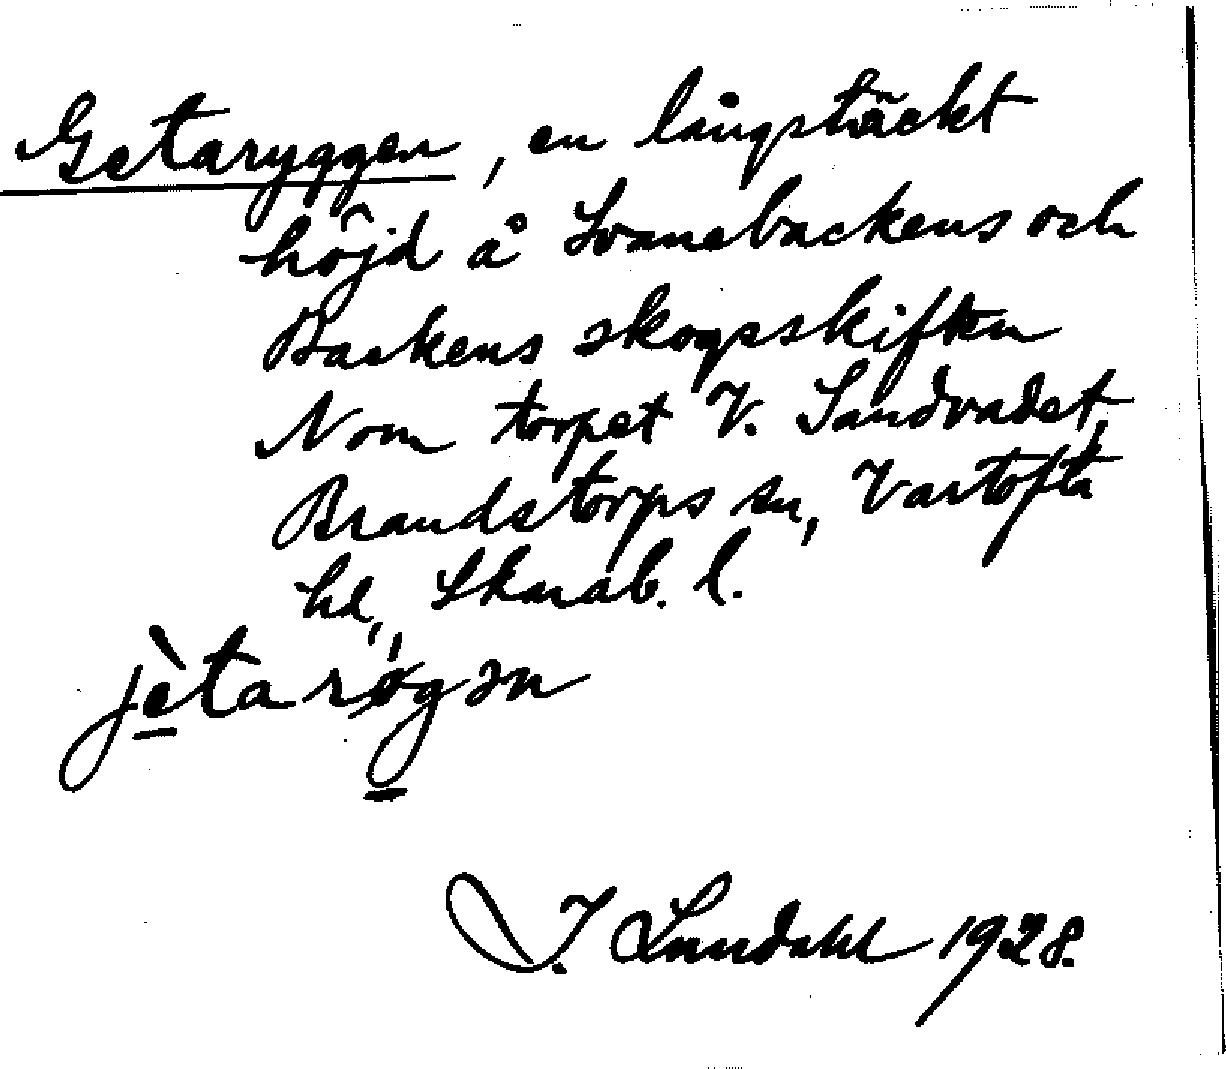 Getaryggen, en långsträckt
höjd å Svanebackens och
Backens skogsskiften
N om torpet V. Sandvadet,
Brandstorps sn, Vartofta
hd, Skarab. l.
jètarøgən
I. Lundahl 1928.